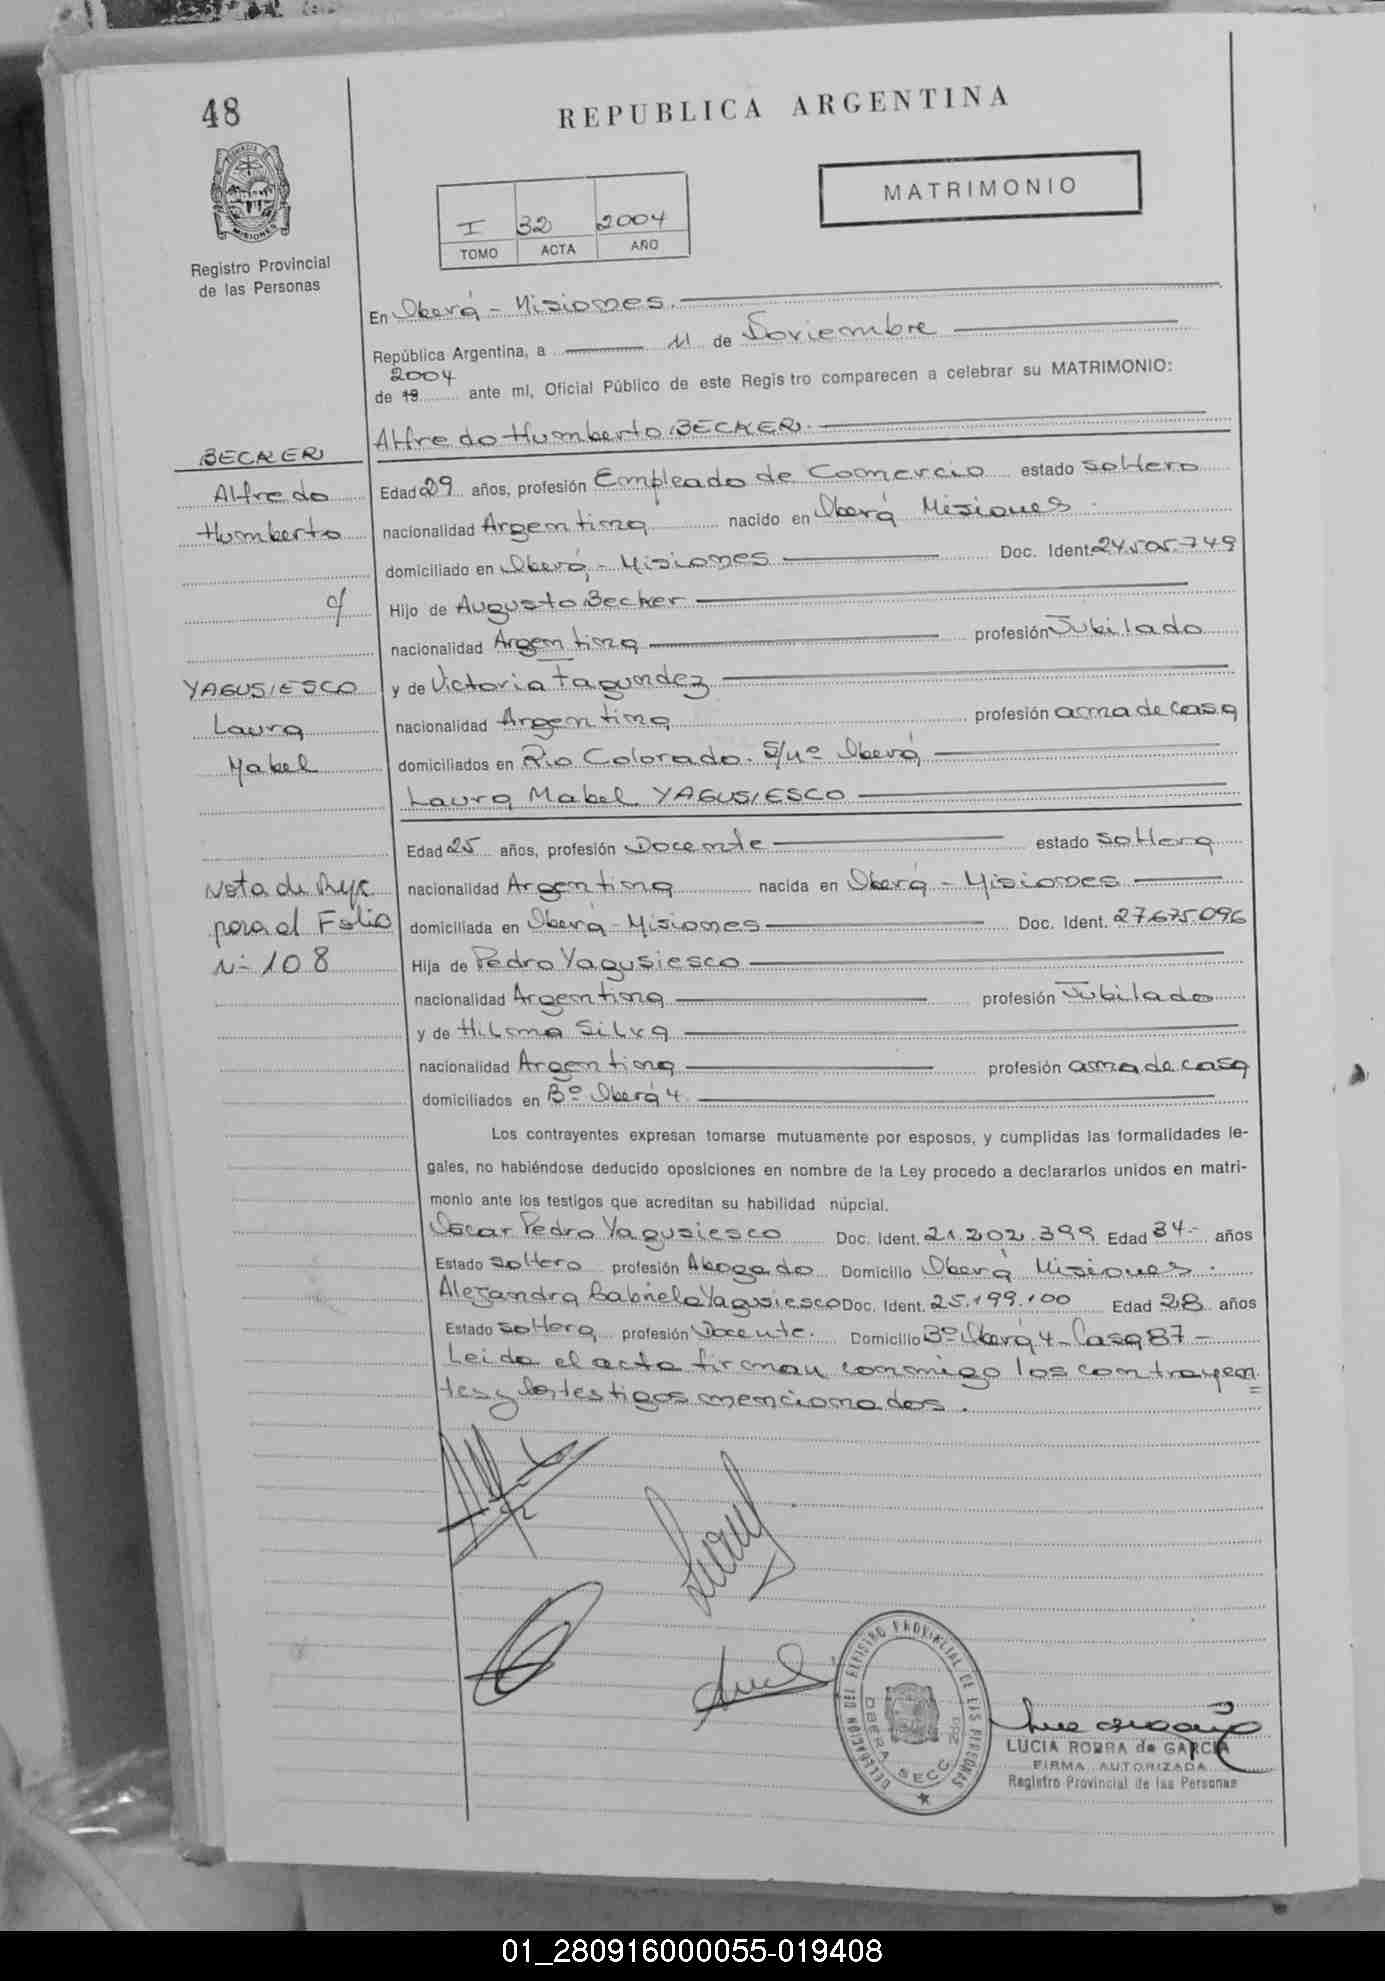 48
REPUBLICA ARGENTINA
PROVINCIA
MISIONES
Registro Provincial
de las Personas
MATRIMONIO
I 32 2004
TOMO ACTA AÑO
En Oberá - Misiones.
República Argentina, a 11 de Noviembre
2004
de 19 ante mí, Oficial Público de este Registro comparecen a celebrar su MATRIMONIO:
Alfredo Humberto BECKER
BECKER
Alfredo
Humberto
c/
YAGUSIESCO
Laura
Mabel
Edad 29 años, profesión Empleado de Comercio estado soltero
nacionalidad Argentina nacido en Oberá Misiones.
domiciliado en Oberá - Misiones Doc. Ident. 24.505.749
Hijo de Augusto Becker
nacionalidad Argentina profesión Jubilado
y de Victoria Fagundez
nacionalidad Argentina profesión ama de casa
domiciliados en Rio Colorado. S/nº Oberá
Laura Mabel YAGUSIESCO
Edad 25 años, profesión Docente estado soltera
nacionalidad Argentina nacida en Oberá - Misiones
domiciliada en Oberá - Misiones Doc. Ident. 27.675.096
Hija de Pedro Yagusiesco
nacionalidad Argentina profesión Jubilado
y de Hilma Silva
nacionalidad Argentina profesión ama de casa
domiciliados en Bº Oberá 4.
Nota de
para el Folio
Nº 108
Los contrayentes expresan tomarse mutuamente por esposos, y cumplidas las formalidades le-
gales, no habiéndose deducido oposiciones en nombre de la Ley procedo a declararlos unidos en matri-
monio ante los testigos que acreditan su habilidad núpcial.
Oscar Pedro Yagusiesco Doc. Ident. 21.202.399 Edad 34.- años
Estado soltero profesión Abogado Domicilio Oberá Misiones.
Alejandra Gabriela Yagusiesco Doc. Ident. 25.199.100 Edad 28 años
Estado soltera profesión Docente. Domicilio Bº Oberá 4 - Casa 87 -
Leida el acta firman conmigo los contrayen
tes y los testigos mencionados.
DELEGACION DEL REGISTRO PROVINCIAL DE LAS PERSONAS
OBERA SECC. 2da
LUCIA ROBRA de GARCIA
FIRMA AUTORIZADA
Registro Provincial de las Personas
01_280916000055-019408